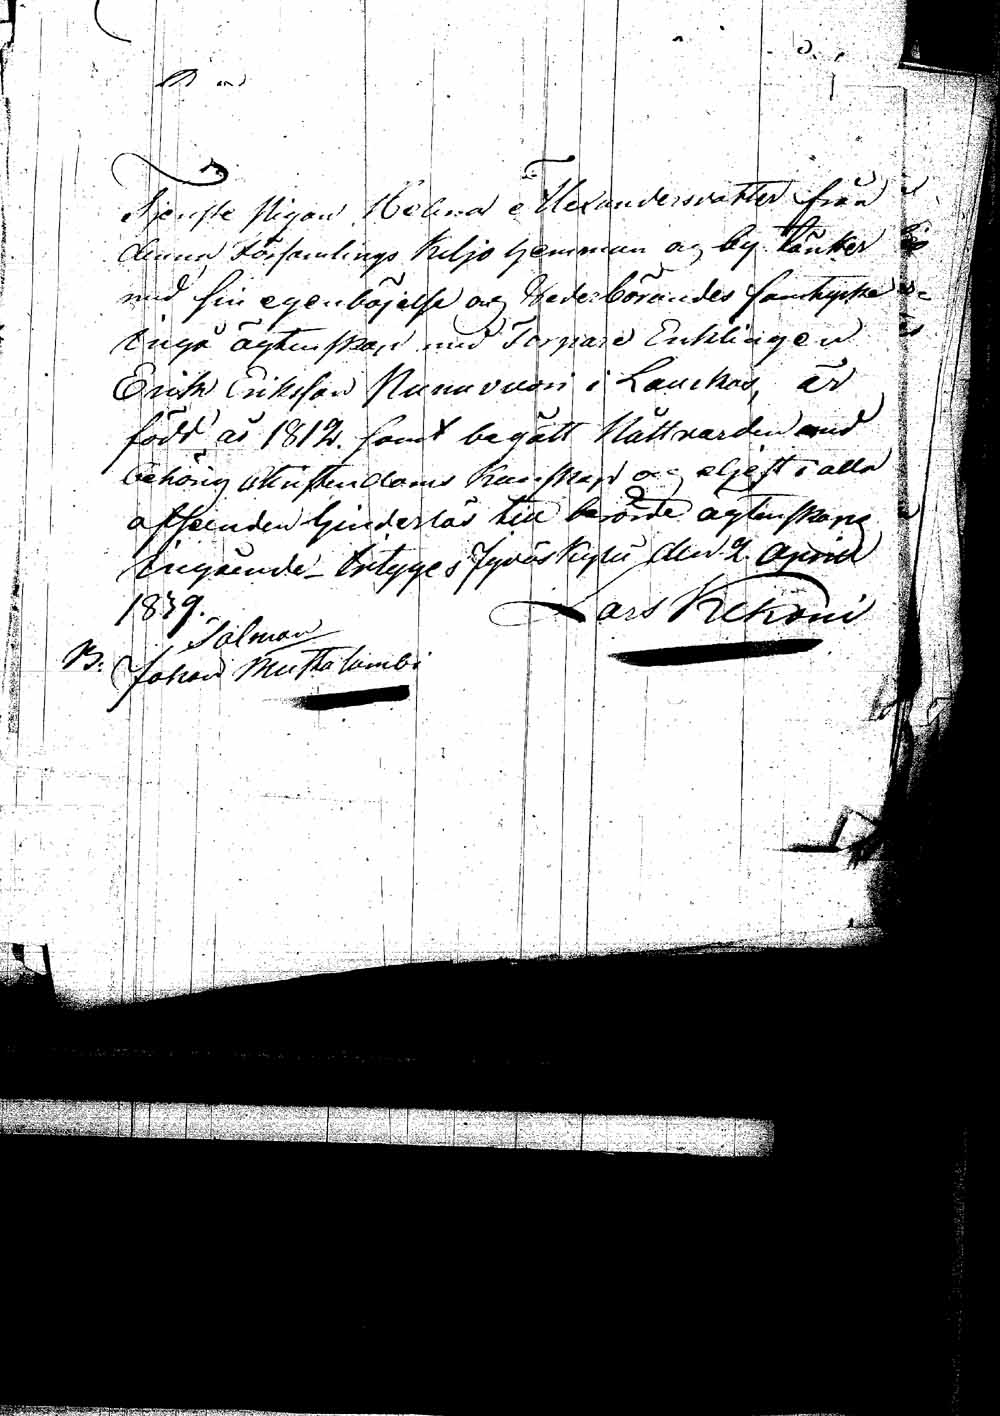 Tjenste pigan Helena Alexandersdotter från
denna Församlings Keljo hemman og by tänker
med sin egenböjelse og Wederbörandes samtycke
ingå ägtenskap med Torpare Enklingen
Erik Eriksson Nunnvuori i Laukas, är
född år 1812. samt begått Nattvarden med
behörig Christendoms Kunskap og eljest i alla
afseenden hinderlös till berörde ägtenskaps
ingående - betyges Jyväskylä den 2 April
1839.
Lars Kekoni
Talman
B. Johan Muttalambi